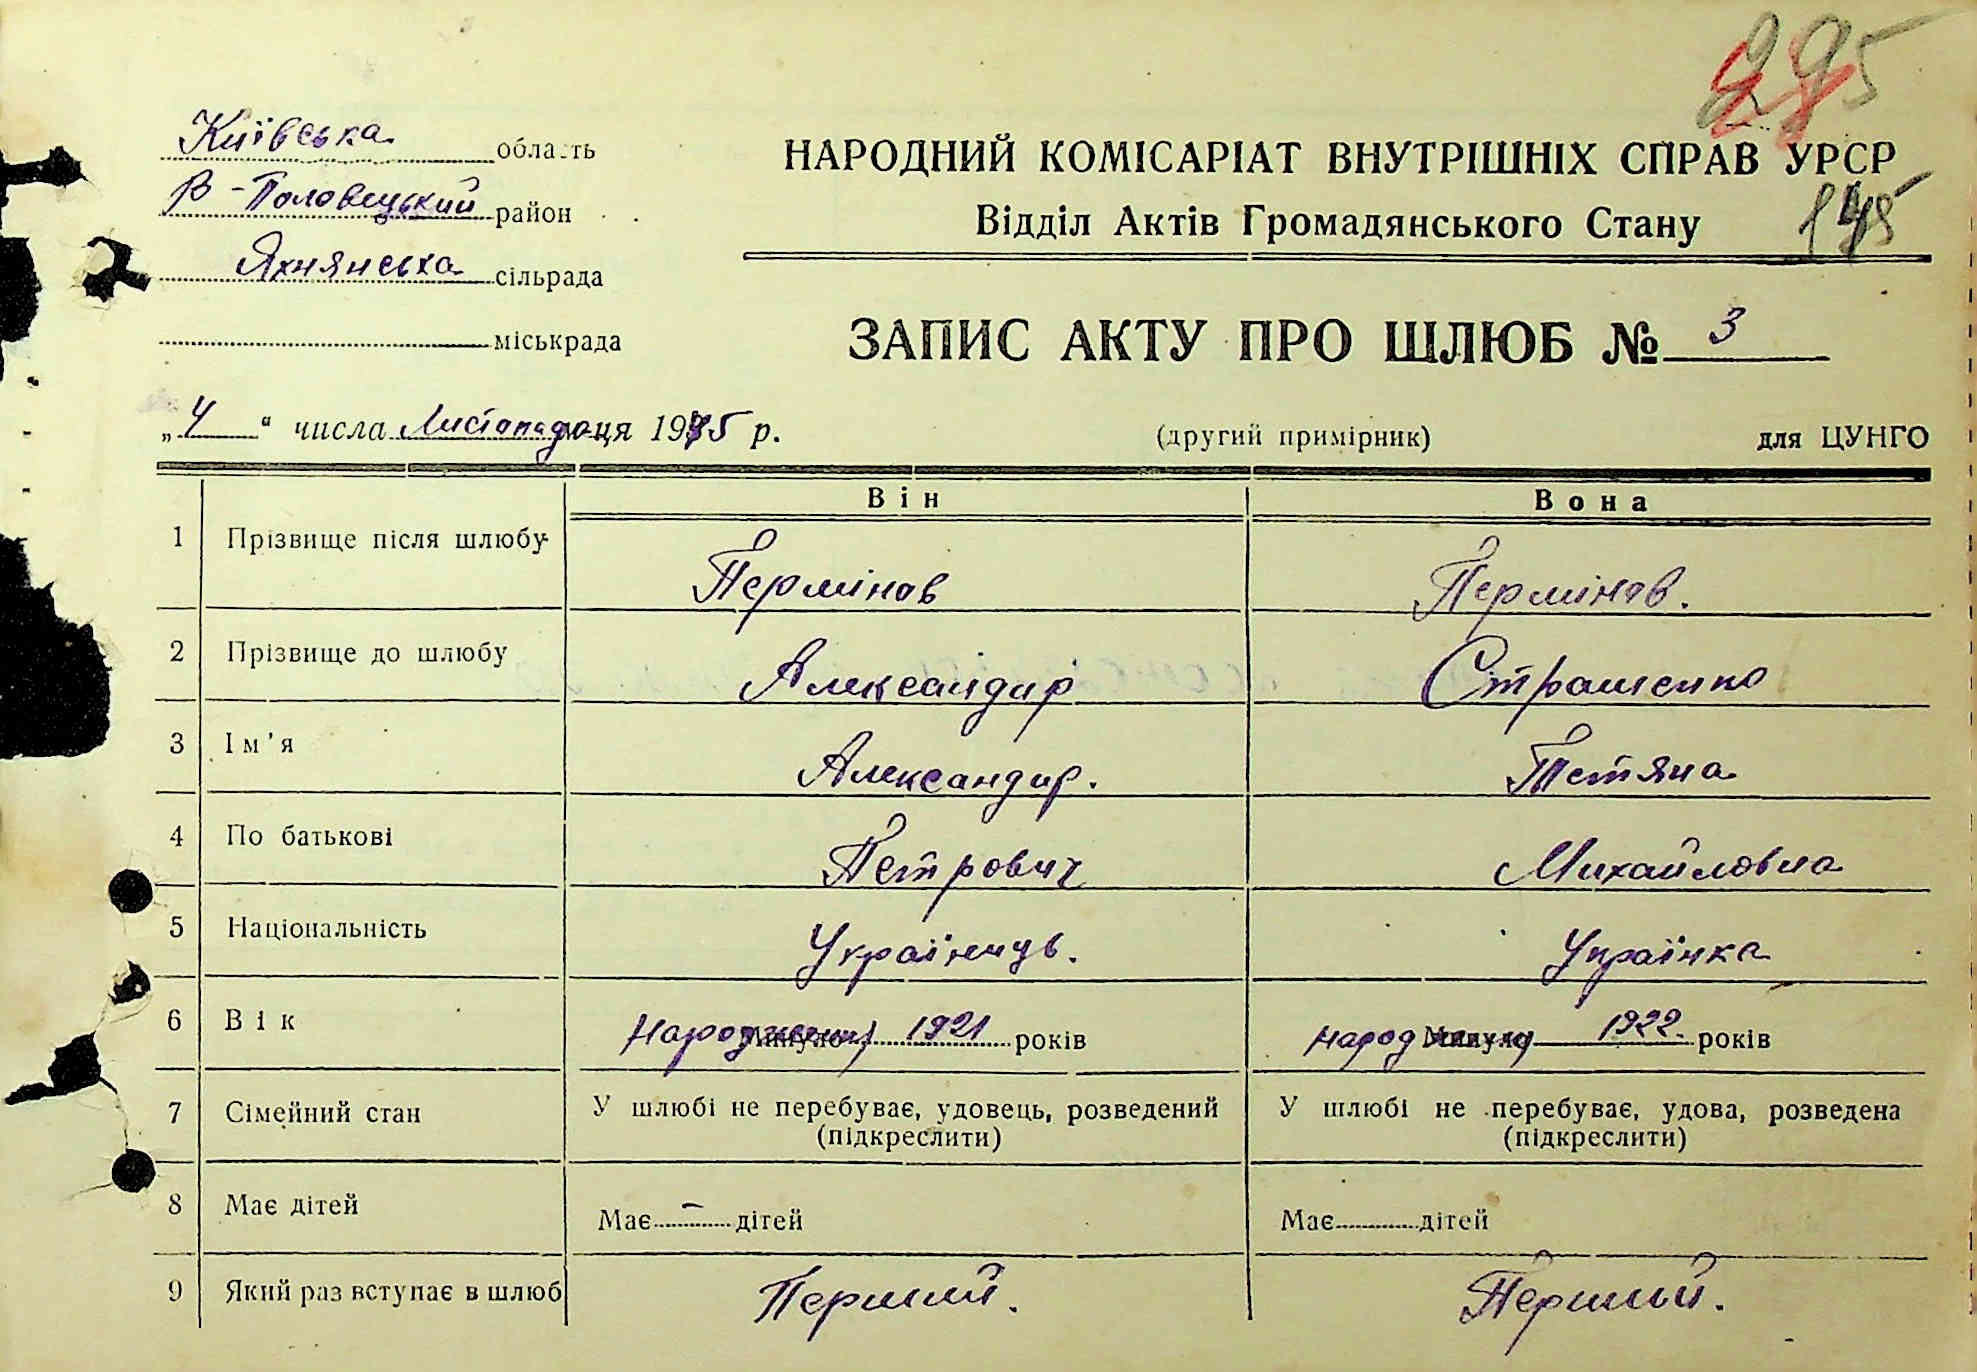 295
Київська область
В-Половецький район
Яхнянська сільрада
міськрада
НАРОДНИЙ КОМІСАРІАТ ВНУТРІШНІХ СПРАВ УРСР
Відділ Актів Громадянського Стану
ЗАПИС АКТУ ПРО ШЛЮБ № 3
„4" числа Листопад місяця 1945 р.
(другий примірник) для ЦУНГО
Він Вона
1 Прізвище після шлюбу Пермінов Пермінов.
2 Прізвище до шлюбу Александир Страшенко
3 Ім'я Александир. Тетяна
4 По батькові Петрович Михайловна
5 Національність Українець. Українка
6 Вік Минуло 1921 років народ Минуло 1922. років
7 Сімейний стан У шлюбі не перебуває, удовець, розведений У шлюбі не перебуває, удова, розведена
(підкреслити) (підкреслити)
8 Має дітей Має – дітей Має дітей
9 Який раз вступає в шлюб Перший. Перший.